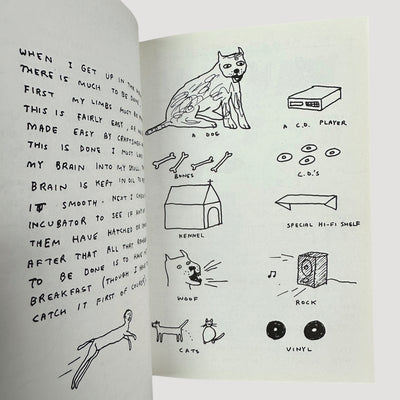 WHEN I GET UP IN THE
THERE IS MUCH TO BE
FIRST MY LIMBS MUST BE
THIS IS FAIRLY EASY,
MADE EASY BY
THIS IS DONE I MUST
MY BRAIN INTO MY
BRAIN IS KEPT IN OIL TO
IT SMOOTH. NEXT I
INCUBATOR TO SEE IF
THEM HAVE HATCHED OR
AFTER THAT ALL THAT
TO BE DONE IS TO HAVE
BREAKFAST (THOUGH I
CATCH IT FIRST OF
A DOG
A C.D. PLAYER
BONES
C.D.'S
KENNEL
SPECIAL HI-FI SHELF
WOOF
ROCK
CATS
VINYL